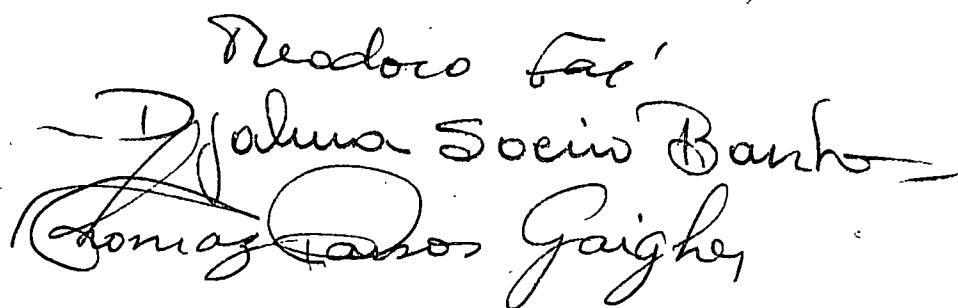 Theodoro Faé
Djalma Soeiro Banho
Thomaz Passos Gaigher